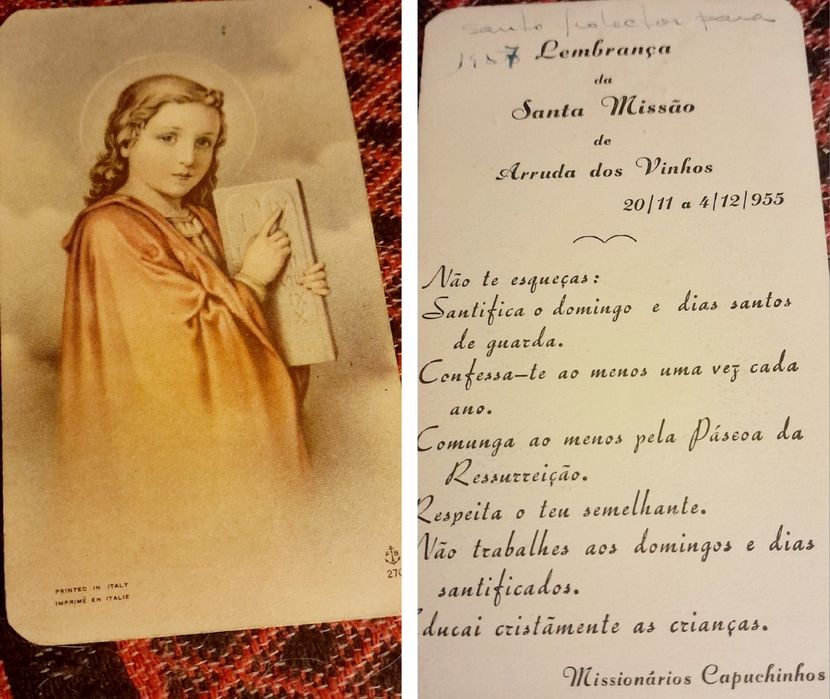 PRINTED IN ITALY
IMPRIMÉ EN ITALIE
FB
270
santo protector para
1957
Lembrança
da
Santa Missão
de
Arruda dos Vinhos
20/11 a 4/12/955
Não te esqueças:
Santifica o domingo e dias santos
de guarda.
Confessa-te ao menos uma vez cada
ano.
Comunga ao menos pela Páscoa da
Ressurreição.
Respeita o teu semelhante.
Não trabalhes aos domingos e dias
santificados.
Educai cristãmente as crianças.
Missionários Capuchinhos